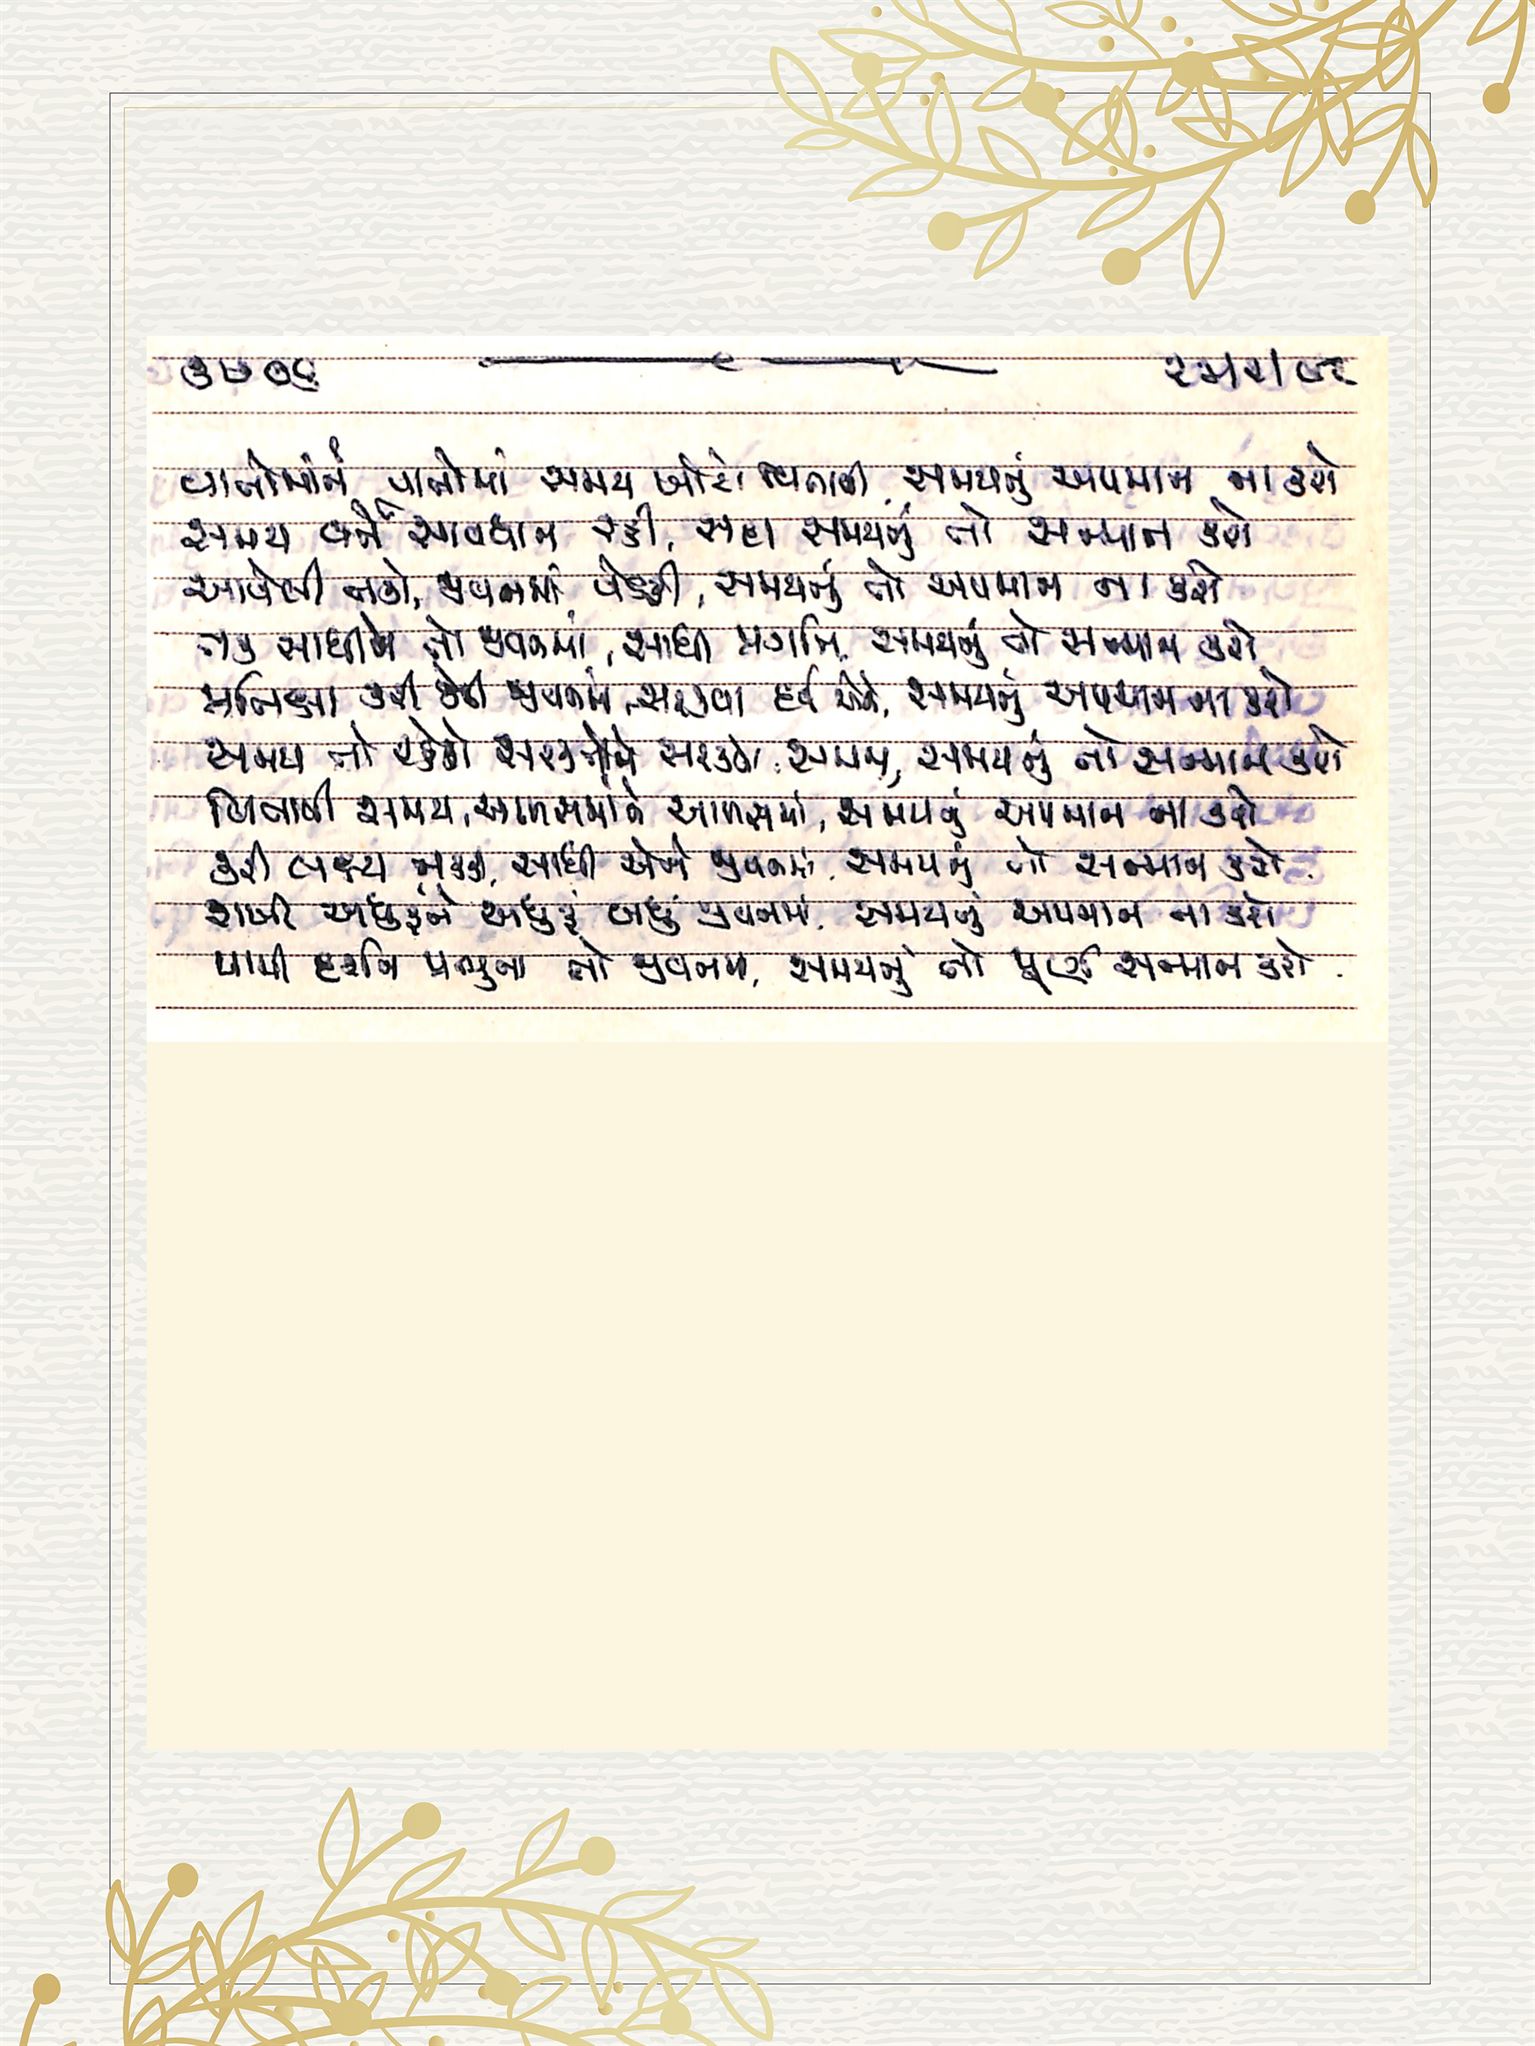 વાતોમાંને વાતોમાં સમય ખોટો વિતાવી, સમયનું અપમાન ના કરો
સમય વર્તે સાવધાન રહી, સદા સમયનું તો સન્માન કરો
આવેલી તકો, જીવનમાં વેડફી, સમયનું તો અપમાન ના કરો
તક સાધીને તો જીવનમાં, સાધી પ્રગતિ, સમયનું તો સન્માન કરો
પ્રતિક્ષા કરી જીવનમાં, સમયનું અપમાન ના કરો
સમય તો રહેશે સરકતોને સરકતો, સમયનું તો સન્માન કરો
વિતાવી સમય, આળસમાંને આળસમાં, સમયનું અપમાન ના કરો
કરી લક્ષ્ય નક્કી, સાધી એને જીવનમાં, સમયનું તો સન્માન કરો.
રાખી અધુરૂંને અધુરૂં બધું જીવનમાં, સમયનું અપમાન ના કરો
પામી દર્શન પ્રભુના તો જીવનમાં, સમયનું તો પૂર્ણ સન્માન કરો.